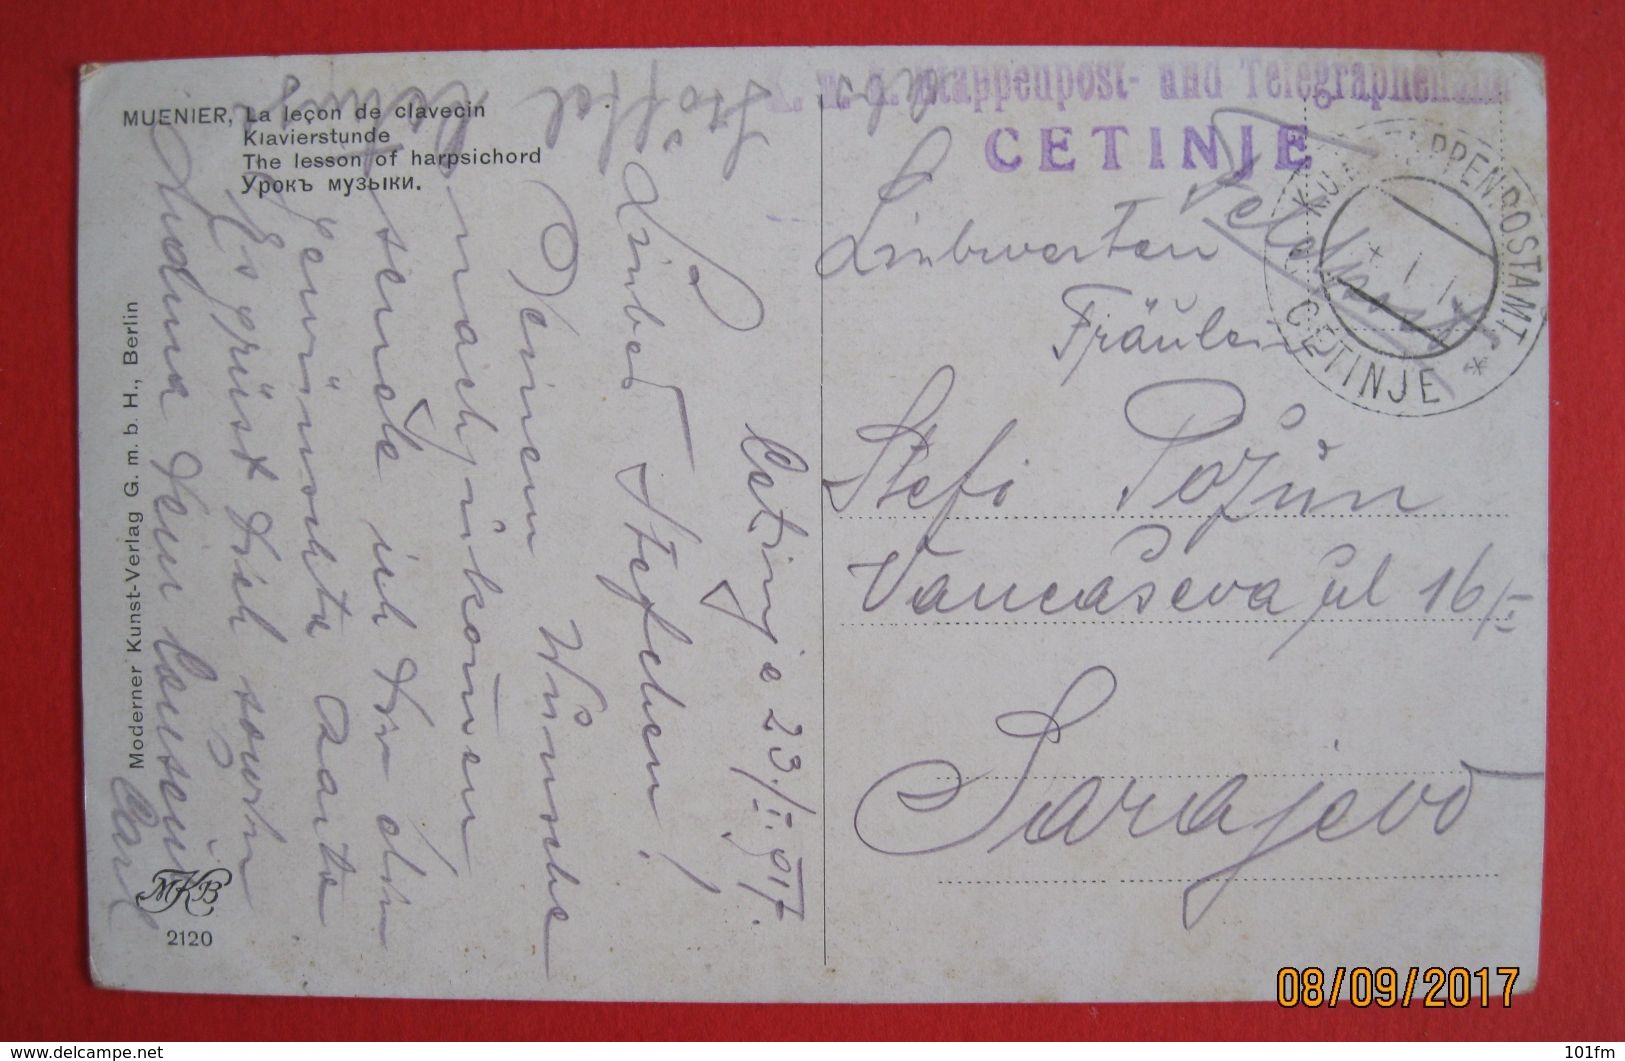 MUENIER, La leçon de clavecin
Klavierstunde
The lesson of harpsichord
Урокъ музыки.
Moderner Kunst-Verlag G. m. b. H., Berlin
MKB
2120
Cetinje 23/I. 917.
Liebes Stefchen!
Deinem Wunsche
nachzukommen
sende ich Dir die
gewünschte Karte
Es grüsst Dich
Dein Cousin
Carl
K. u. k. Etappenpost- und Telegraphenamt
CETINJE
K.u.K. ETAPPENPOSTAMT
CETINJE
Feldpost
Fräulein
Stefi Požun
Vancaševa ul 16/I
Sarajevo
08/09/2017
101fm